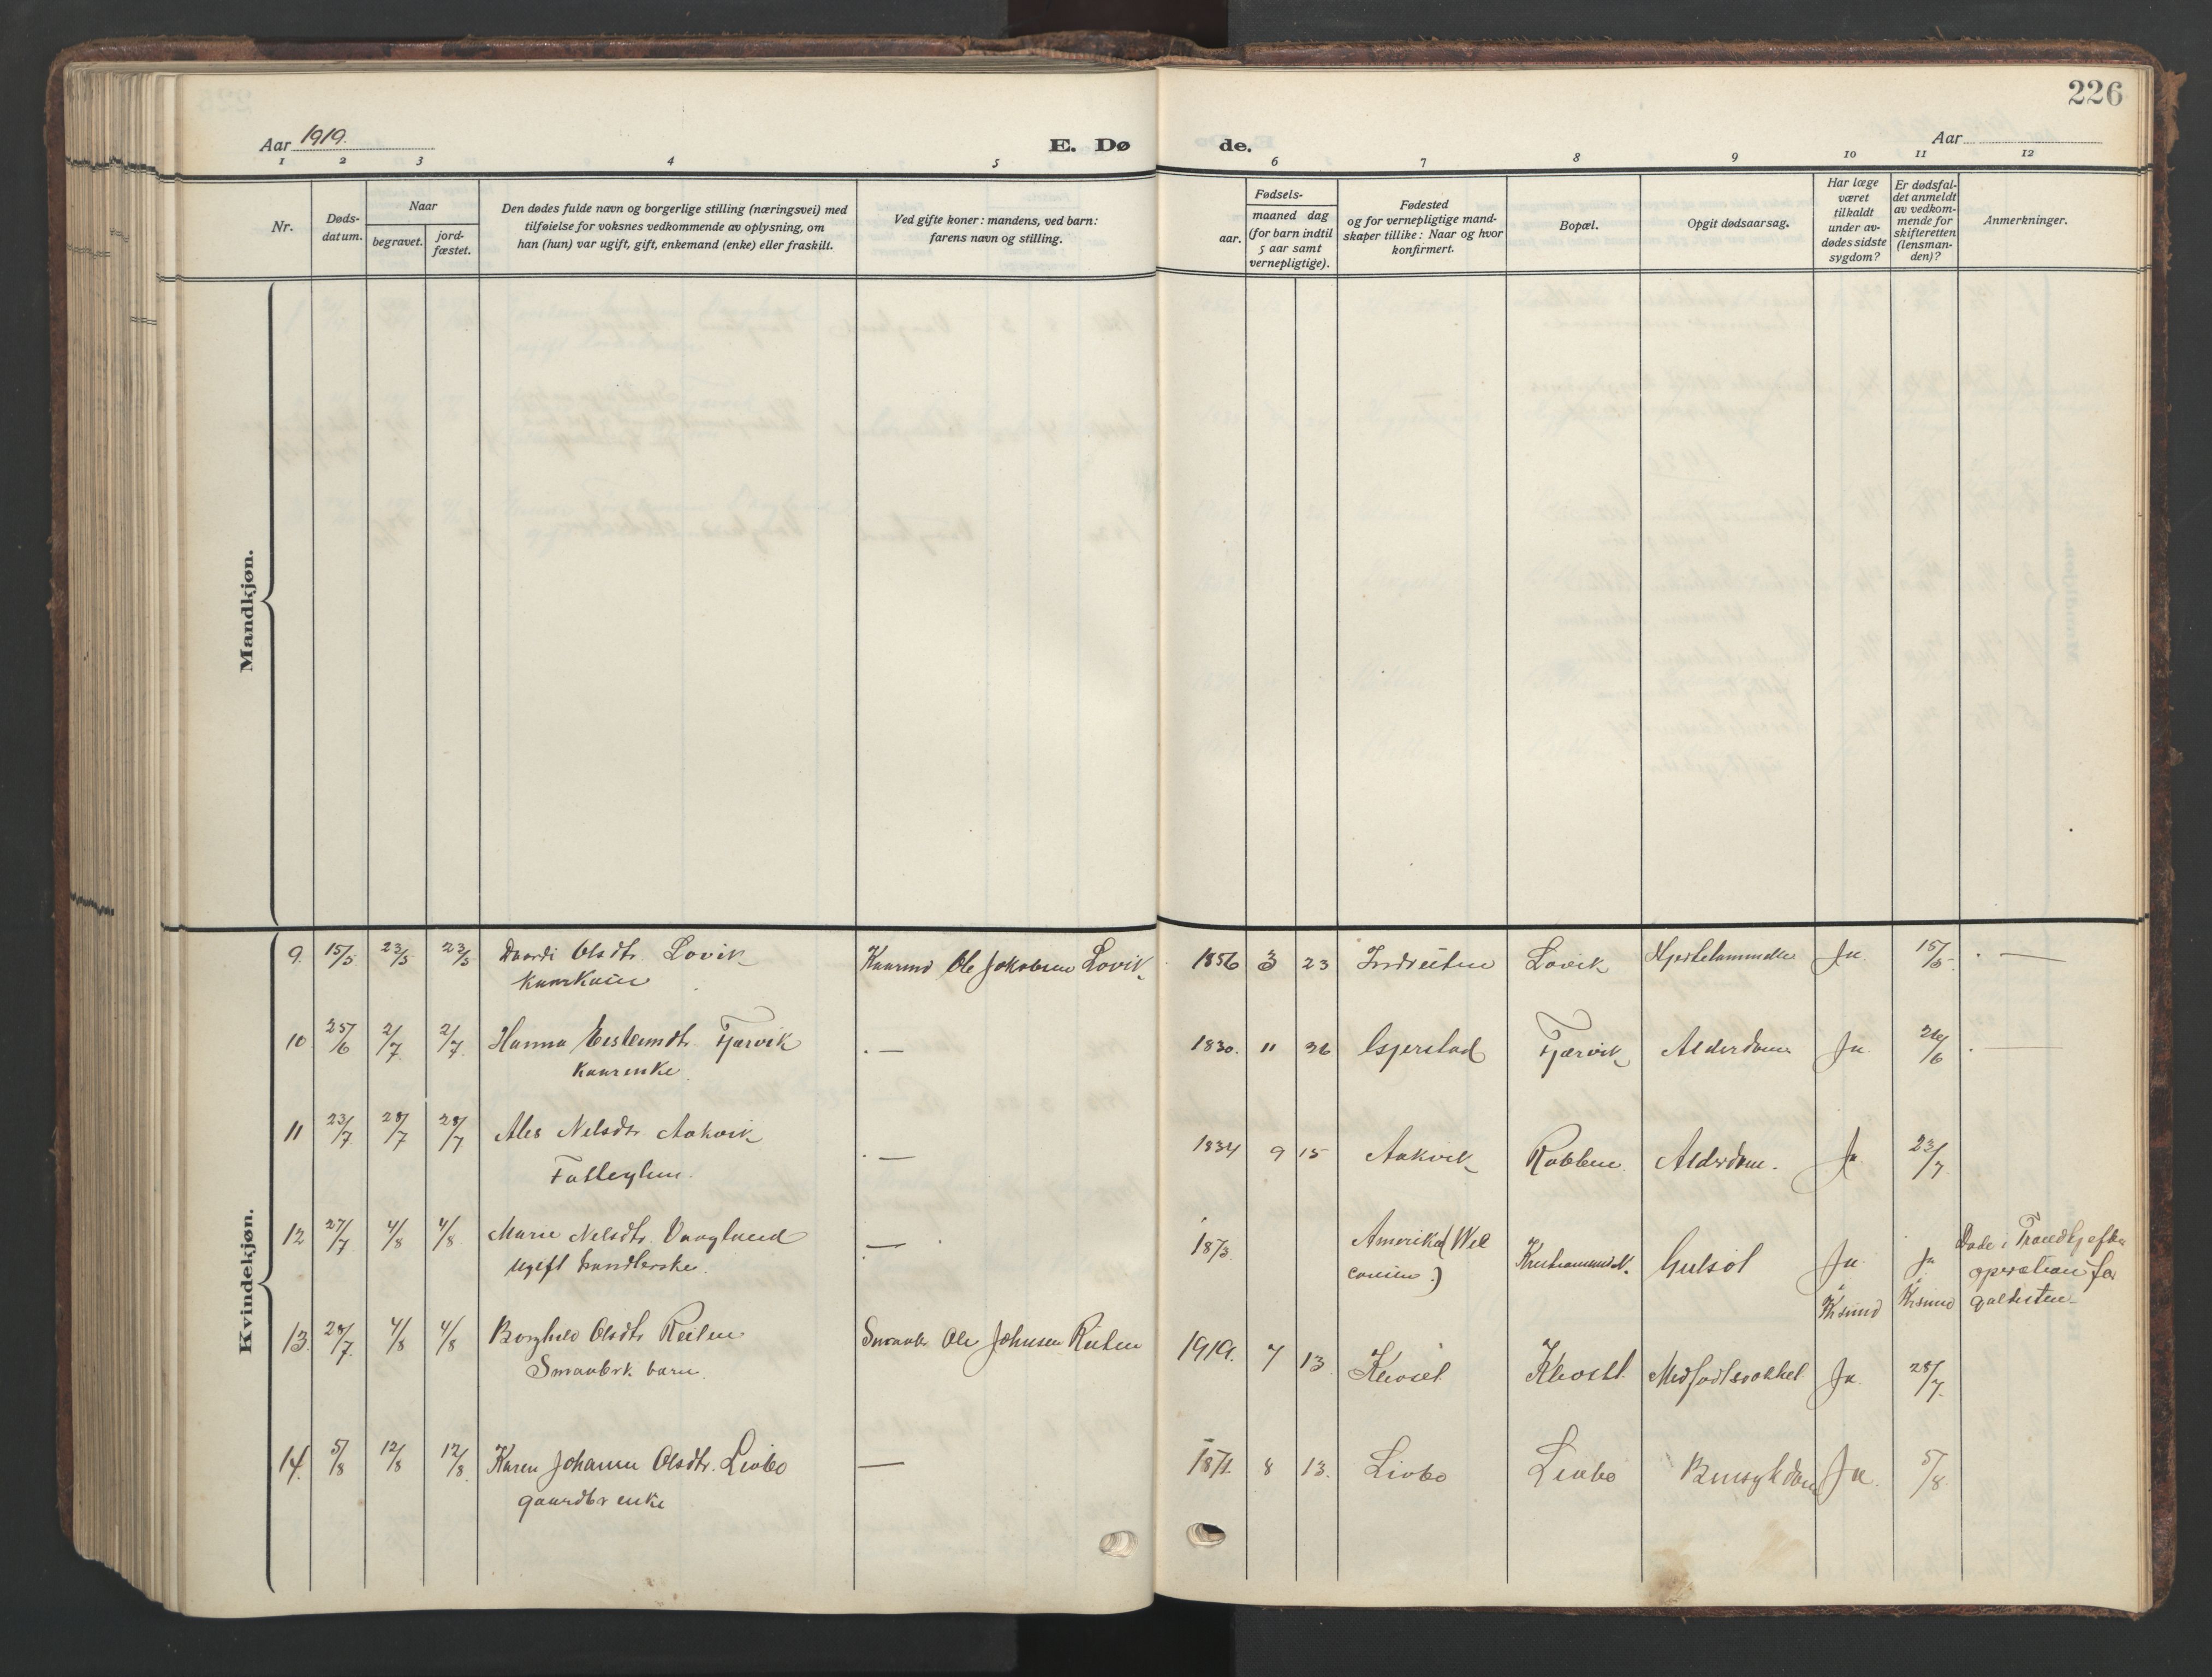 226
Aar 1919.
E. Døde.
Aar
1 2 3 4 5 6 7 8 9 10 11 12
Nr.
Døds-
datum.
Naar
begravet.
jord-
fæstet.
Den dødes fulde navn og borgerlige stilling (næringsvei) med
tilføielse for voksnes vedkommende av oplysning, om
han (hun) var ugift, gift, enkemand (enke) eller fraskilt.
Ved gifte koner: mandens, ved barn:
farens navn og stilling.
Fødsels-
aar.
maaned dag
(for barn indtil
5 aar samt
vernepligtige).
Fødested
og for vernepligtige mand-
skaper tillike: Naar og hvor
konfirmert.
Bopæl.
Opgit dødsaarsag.
Har læge
været
tilkaldt
under av-
dødes sidste
sygdom?
Er dødsfal-
det anmeldt
av vedkom-
mende for
skifteretten
(lensman-
den)?
Anmerkninger.
Mandkjøn.
Kvindekjøn.
9. 15/5 23/5 23/5 Olsdtr. Lovik Ole Jakobsen Lovik 1856 3 23 Lovik Ja. 15/5 —
kaarkone
10 25/6 2/7 2/7 Hanna Fjærvik — 1830. 11 Fjærvik Alderdom Ja. 26/6 —
kaarenke
11 23/7 28/7 28/7 Ales Nelsdtr Aakvik — 1834 9 15 Aakvik Robben Alderdom. Ja 23/7
Fatleglem.
12 27/7 4/8 4/8 Marie Nelsdtr. Vaagland — 1873. Amerika (Wis
consin.) Kristiansund N. Gulsot Ja Krsund Ja Krsund Døde i Trondhj efter
operation for
galdesten
ugift handlerske.
13. 28/7 4/8 4/8 Borghild Olsdtr Reiten Smaabr Ole Johnsen Reiten 1919. 7 13 Medfødt svakhet Ja. 28/7
Smaabrk barn.
14. 5/8 12/8 12/8 Karen Johanna Olsdtr. Livbo — 1871. 8 13. Livbo Livbo Ja. 5/8
gaardbr enke